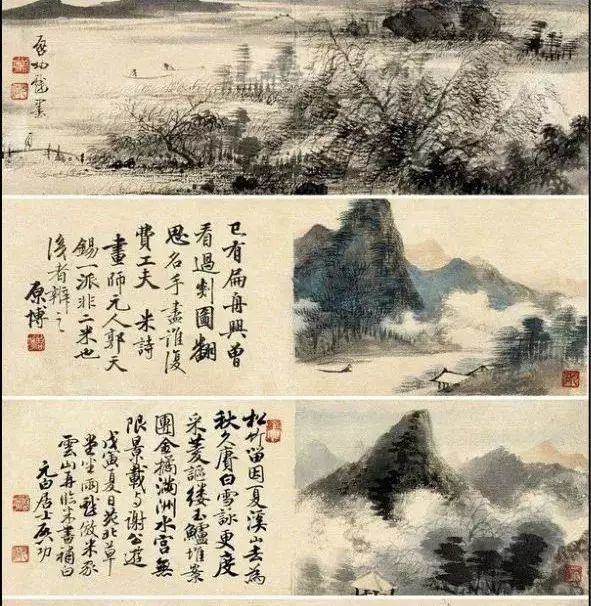 啟功戲墨
已有扁舟興曾
看過剡圖翻
思名手畫誰復
費工夫 米詩
畫師元人郭天
錫一派非二米也
後者辨之
原博
松竹留因夏溪山去為
秋久賡白雪詠更度
采菱謳縷玉鱸堆案
團金橘滿洲水宮無
限景載与謝公遊
戊寅夏日苑北草
堂坐雨戲倣米家
雲山再臨米書補白
元白居士啟功